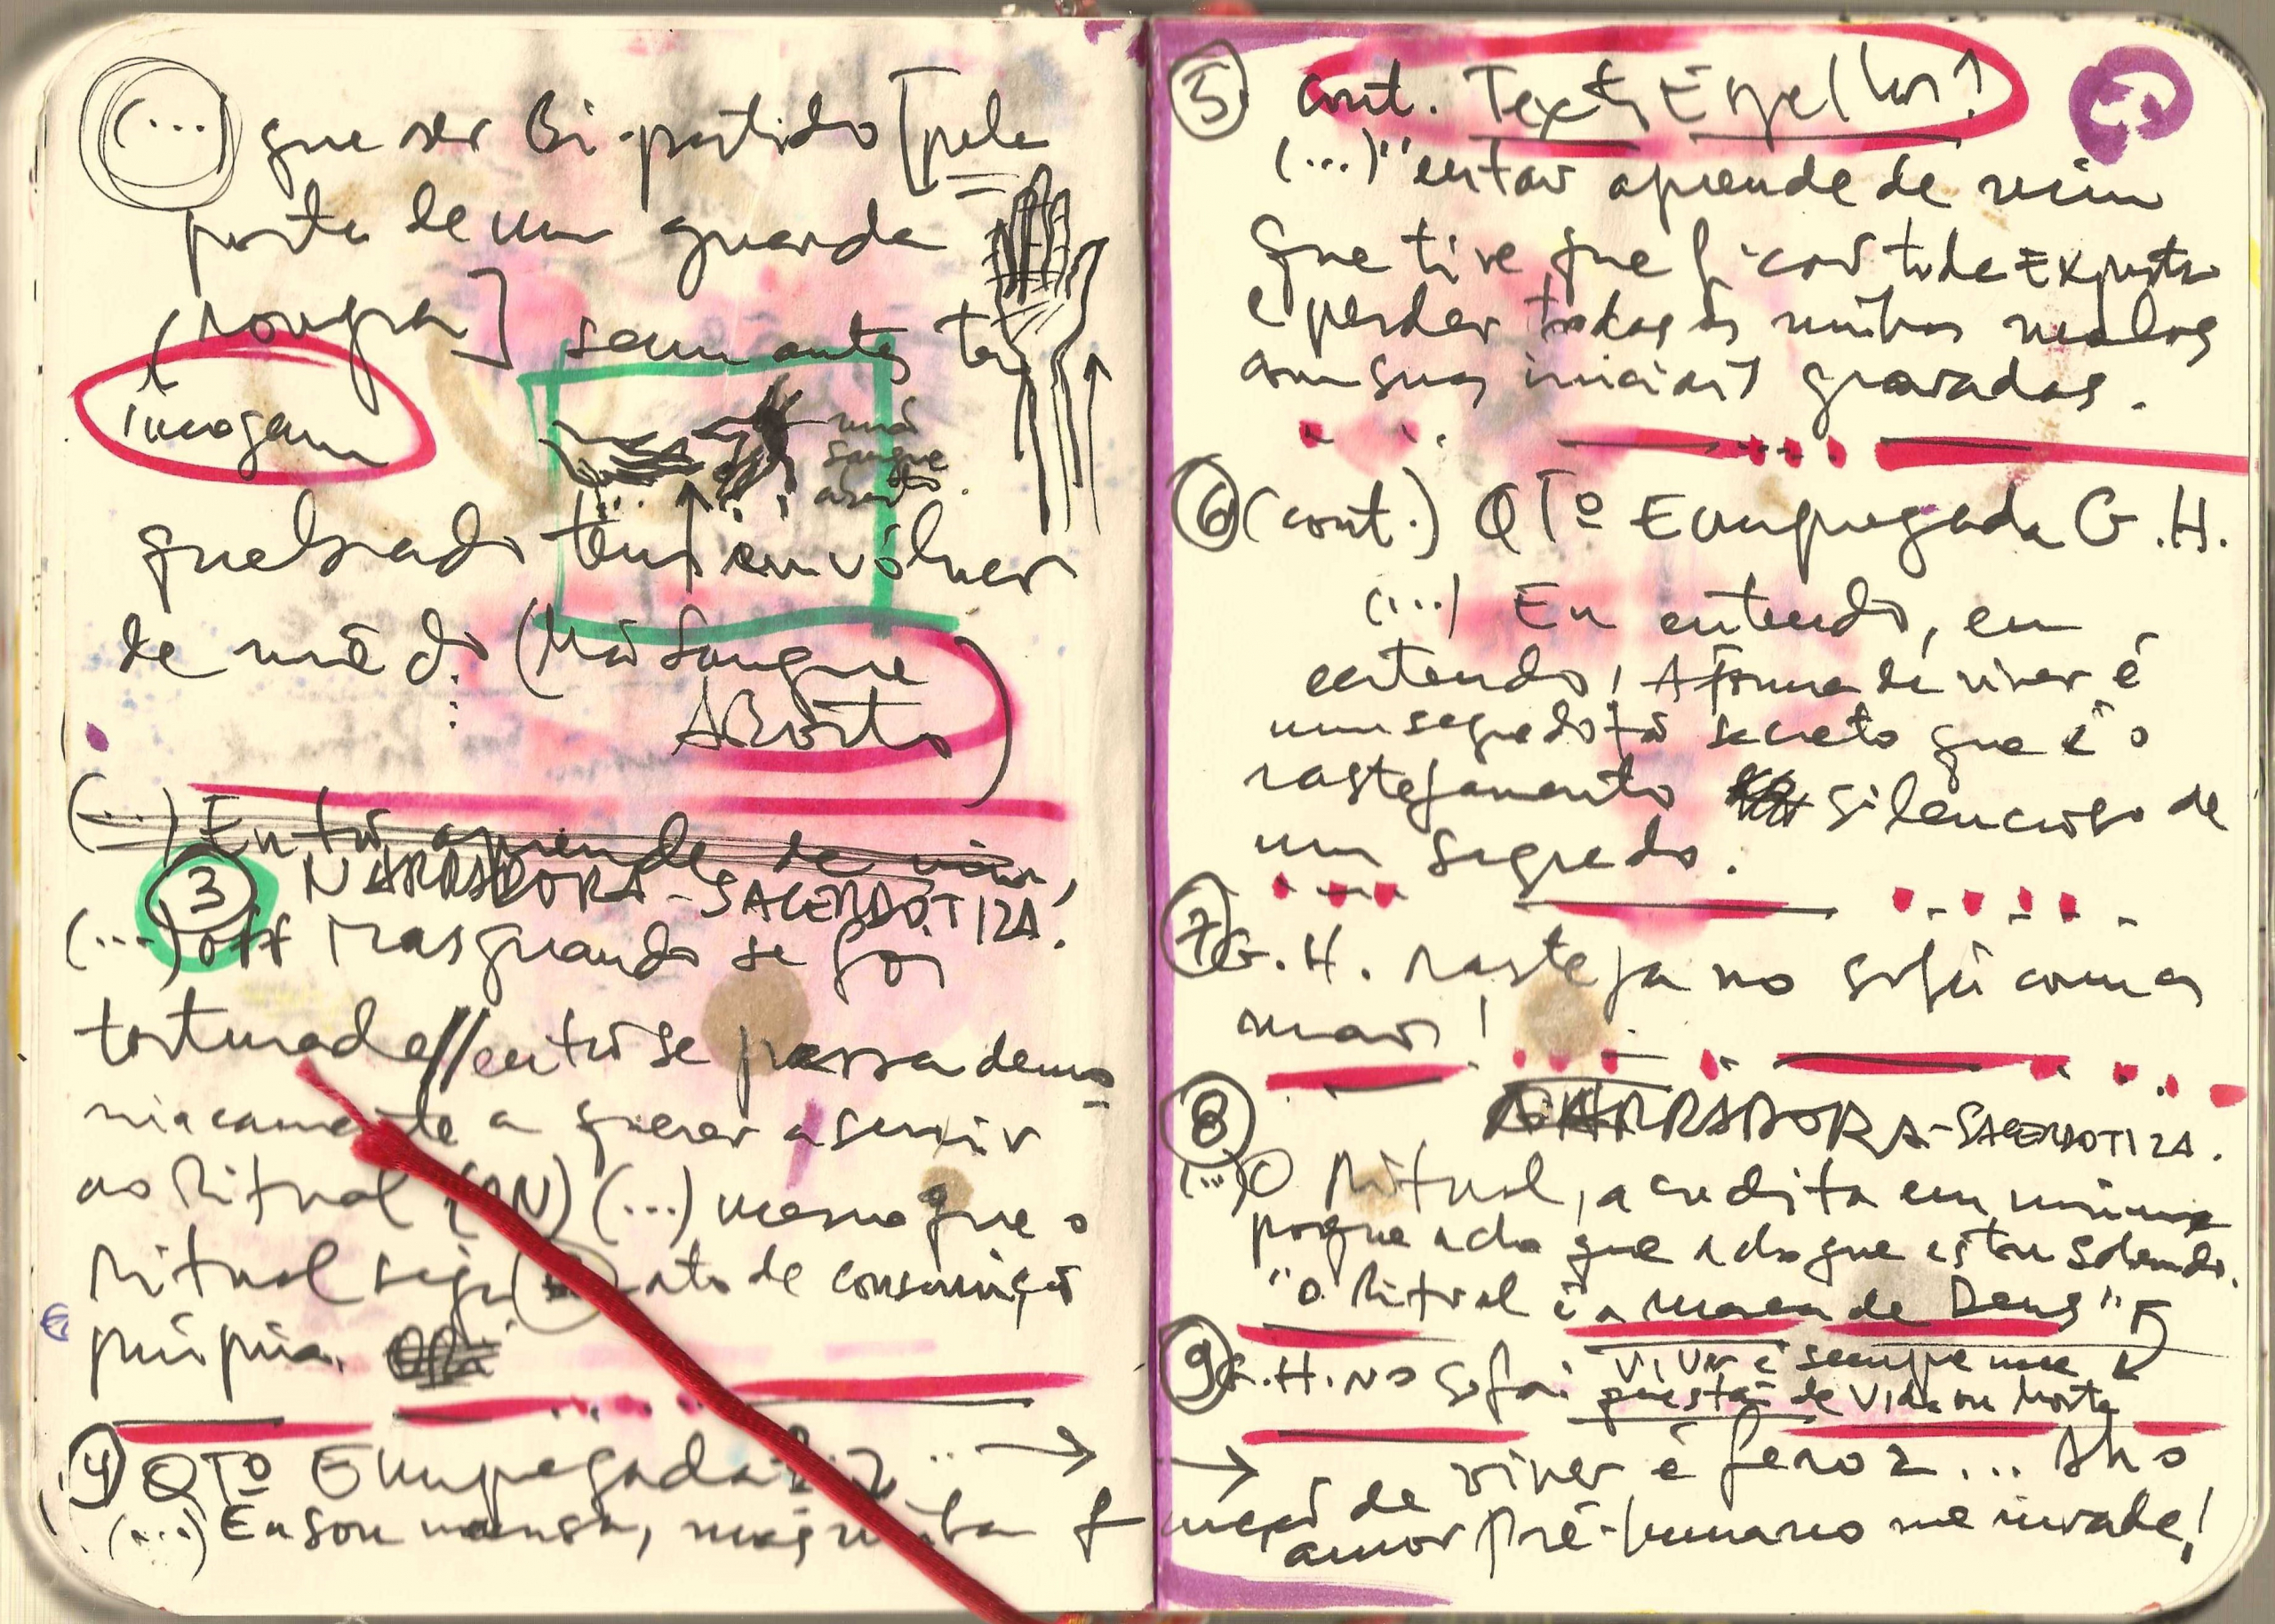 (...) que ser Bi-partido [pela
porta de um guarda
(roupa] sem antes ter
imagem
mão
sangue
aborto.
quebrado tem em vólver
de mão do (Mão Sangue
ABorto)
(...) Então aprende de mim,
3 NARRADORA-SACERDOTIZA.
(...) off Mas quando se foi
torturada// então se passa demo
niacamente a querer a servir
ao Ritual (...) mesmo que o
Ritual seja ato de consumição
própria.
4 QTº Empregada
(...) Eu sou mansa, mas minha f
5 cont. Texto Espelhos!
(...)" então aprende de mim
que tive que ficar toda Exposta
e perder todas as minhas malas
com suas iniciais gravadas.
6 (cont.) QTº Empregada G.H.
(...) Eu entendo, eu
entendo! A forma de viver é
um segredo tão secreto que é o
rastejamento silencioso de
um segredo.
7 G.H. rasteja no sofá com as
mãos!
8 NARRADORA-SACERDOTIZA.
(...) O Ritual, acredita em mim
porque acho que acho que estou sabendo.
"o Ritual é a marca de Deus"
9 G.H. no sofá: Viver é sempre uma
questão de Vida ou Morte
unção de viver é feroz...
amor pré-humano me invade!